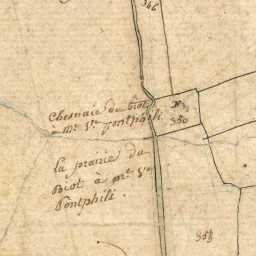 346
Chesnaie du biot
à Mr. Vr. Pontphili
350
La prairie du
Biot à Mr. Vr.
Pontphili